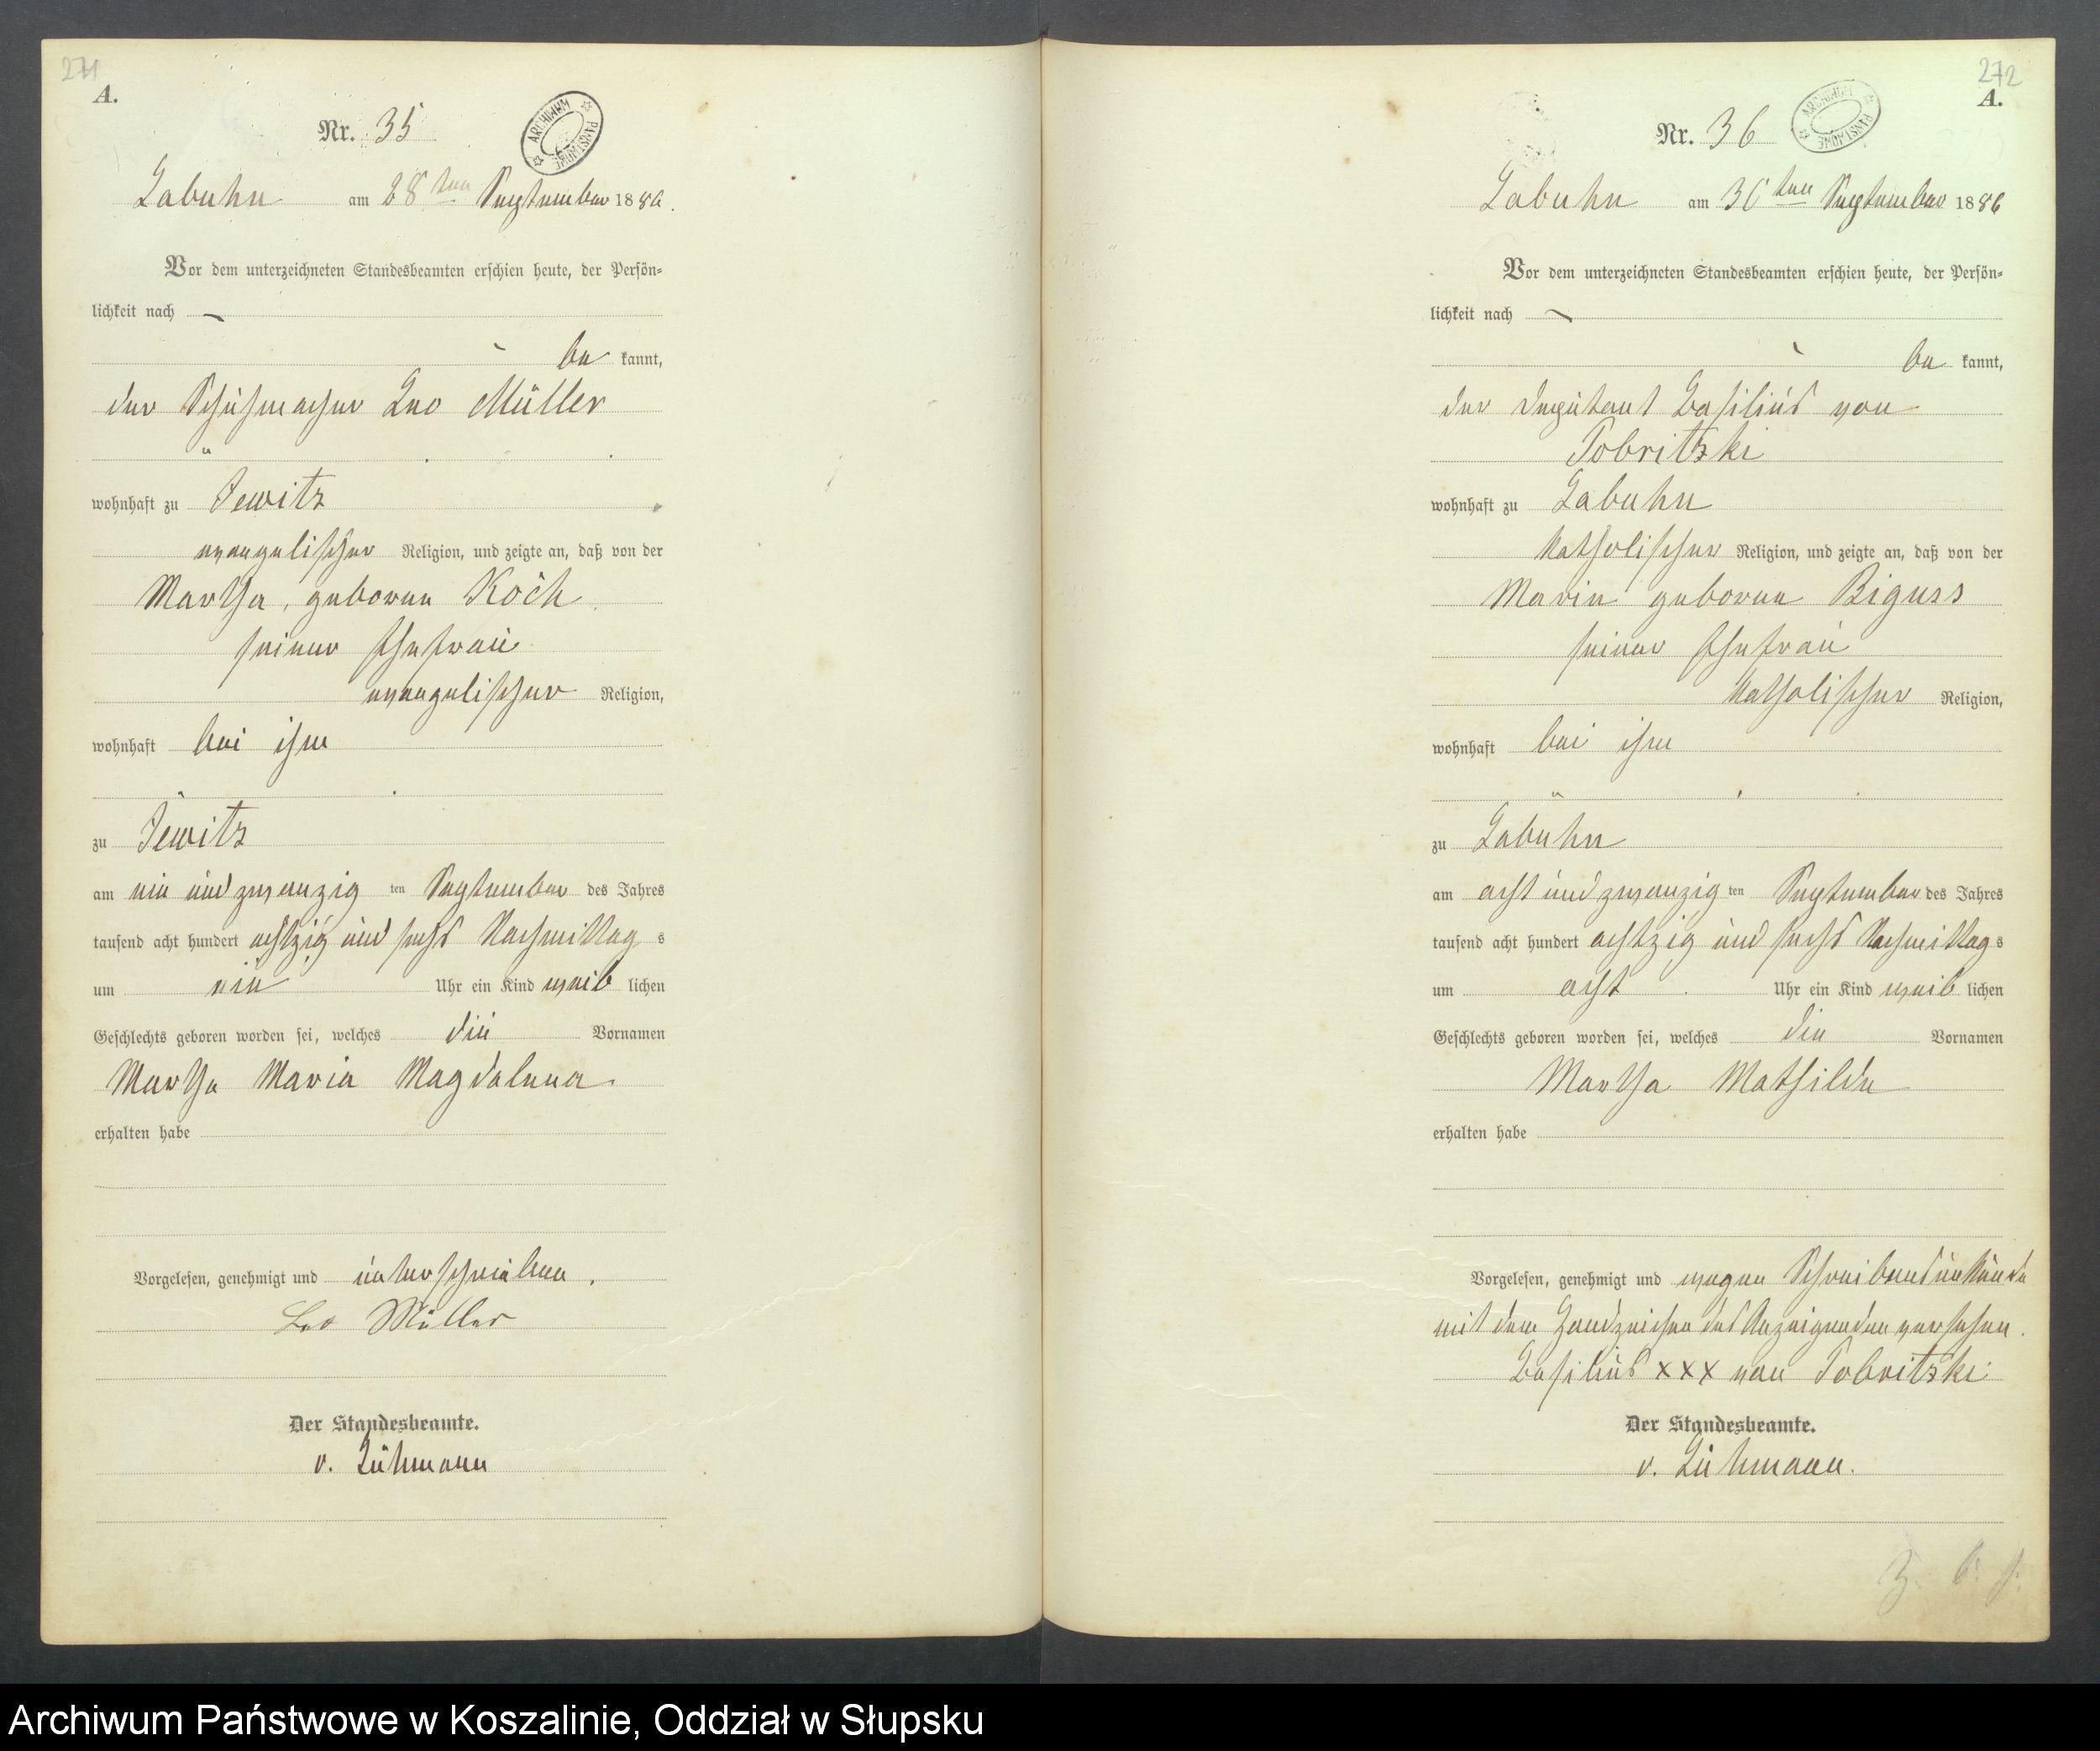 271
A.
Nr. 35
ARCHIWUM PAŃSTWOWE
Labuhn am 28ten September 1886.
Vor dem unterzeichneten Standesbeamten erschien heute, der Persön-
lichkeit nach
be kannt,
der Schuhmacher Leo Müller
wohnhaft zu Jewitz
evangelischer Religion, und zeigte an, daß von der
Martha, geborene Koch
seiner Ehefrau
evangelischer Religion,
wohnhaft bei ihm
zu Jewitz
am ein und zwanzig ten September des Jahres
tausend acht hundert achtzig und sechs Nachmittag s
um ein Uhr ein Kind weib lichen
Geschlechts geboren worden sei, welches die Vornamen
Martha Maria Magdalena
erhalten habe
Vorgelesen, genehmigt und unterschrieben.
Leo Müller
Der Standesbeamte.
v. Lühmann
272
A.
Nr. 36
ARCHIWUM PAŃSTWOWE
Labuhn am 30ten September 1886
Vor dem unterzeichneten Standesbeamten erschien heute, der Persön-
lichkeit nach
be kannt,
der Deputant Basilius von
Tobritzki
wohnhaft zu Labuhn
katholischer Religion, und zeigte an, daß von der
Marie geborene Biguss
seiner Ehefrau
katholischer Religion,
wohnhaft bei ihm
zu Labuhn
am acht und zwanzig ten September des Jahres
tausend acht hundert achtzig und sechs Nachmittag s
um acht Uhr ein Kind weib lichen
Geschlechts geboren worden sei, welches die Vornamen
Martha Mathilde
erhalten habe
Vorgelesen, genehmigt und wegen Schreibensunkunde
mit dem Handzeichen des Anzeigenden versehen.
Basilius xxx von Tobritzki
Der Standesbeamte.
v. Lühmann.
Archiwum Państwowe w Koszalinie, Oddział w Słupsku